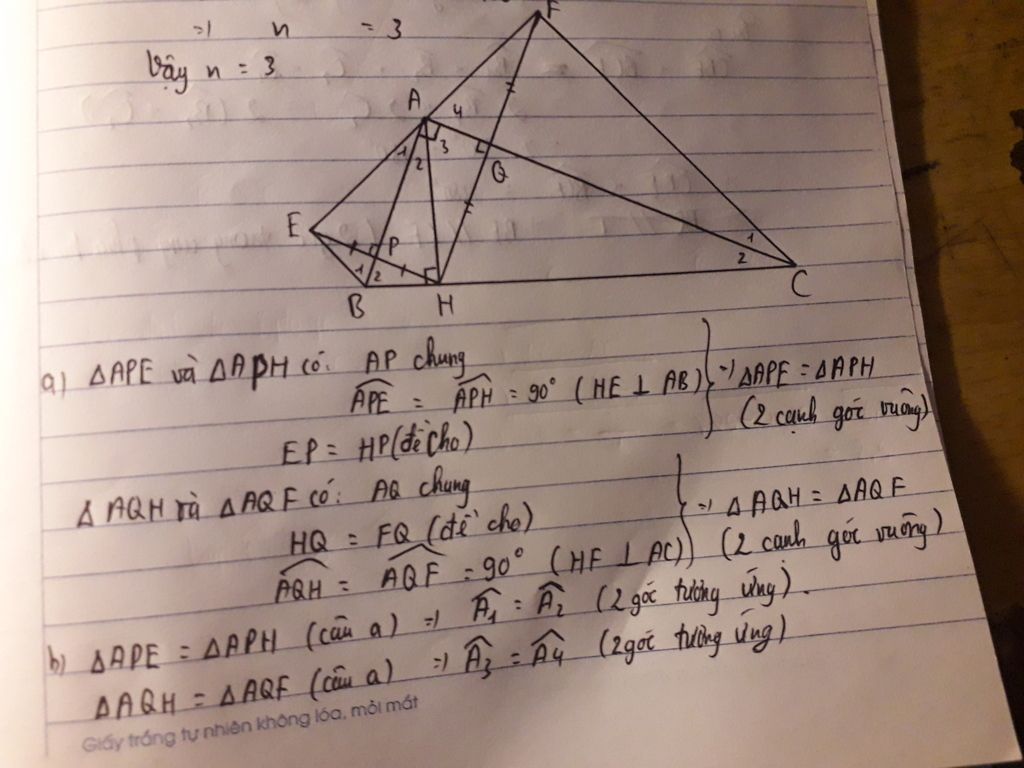 =) n = 3
Vậy n = 3
F
A
4
1
3
2
Q
E
P
1
2
1
2
B
H
C
a) ΔAPE và ΔAPH có: AP chung
$\widehat{APE}$ = $\widehat{APH}$ = 90° (HE ⊥ AB) } =) ΔAPE = ΔAPH
EP = HP (đề cho) (2 cạnh góc vuông)
ΔAQH và ΔAQF có: AQ chung
HQ = FQ (đề cho) } =) ΔAQH = ΔAQF
$\widehat{AQH}$ = $\widehat{AQF}$ = 90° (HF ⊥ AC) (2 cạnh góc vuông)
b) ΔAPE = ΔAPH (câu a) =) $\widehat{A_1}$ = $\widehat{A_2}$ (2 góc tương ứng).
ΔAQH = ΔAQF (câu a) =) $\widehat{A_3}$ = $\widehat{A_4}$ (2 góc tương ứng)
Giấy trắng tự nhiên không lóa, mỏi mắt